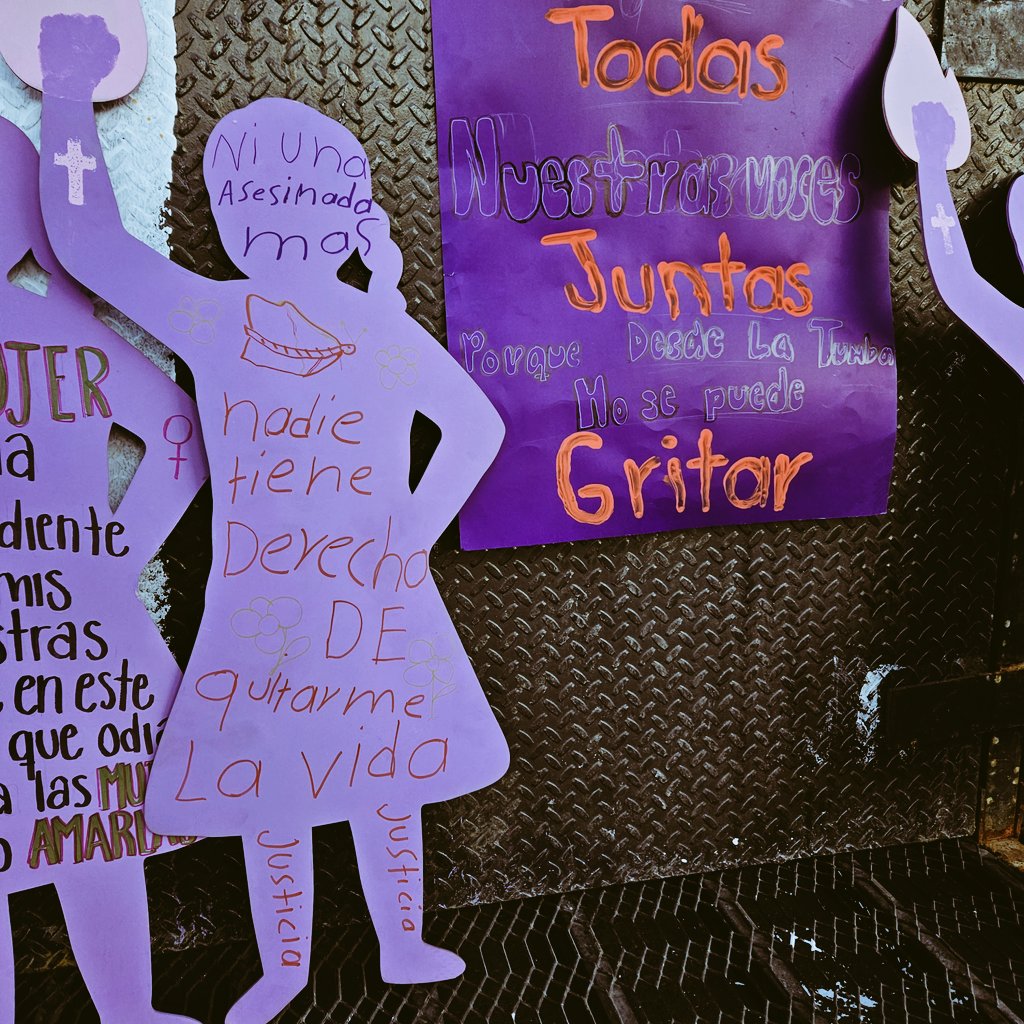 Ni Una
Asesinada
mas
nadie
tiene
Derecho
DE
quitarme
La vida
Justicia
Justicia
Todas
Nuestras voces
Juntas
Porque Desde La Tumba
No se puede
Gritar
JER
diente
mis
stras
en este
que odia
a las MU
AMARLAS